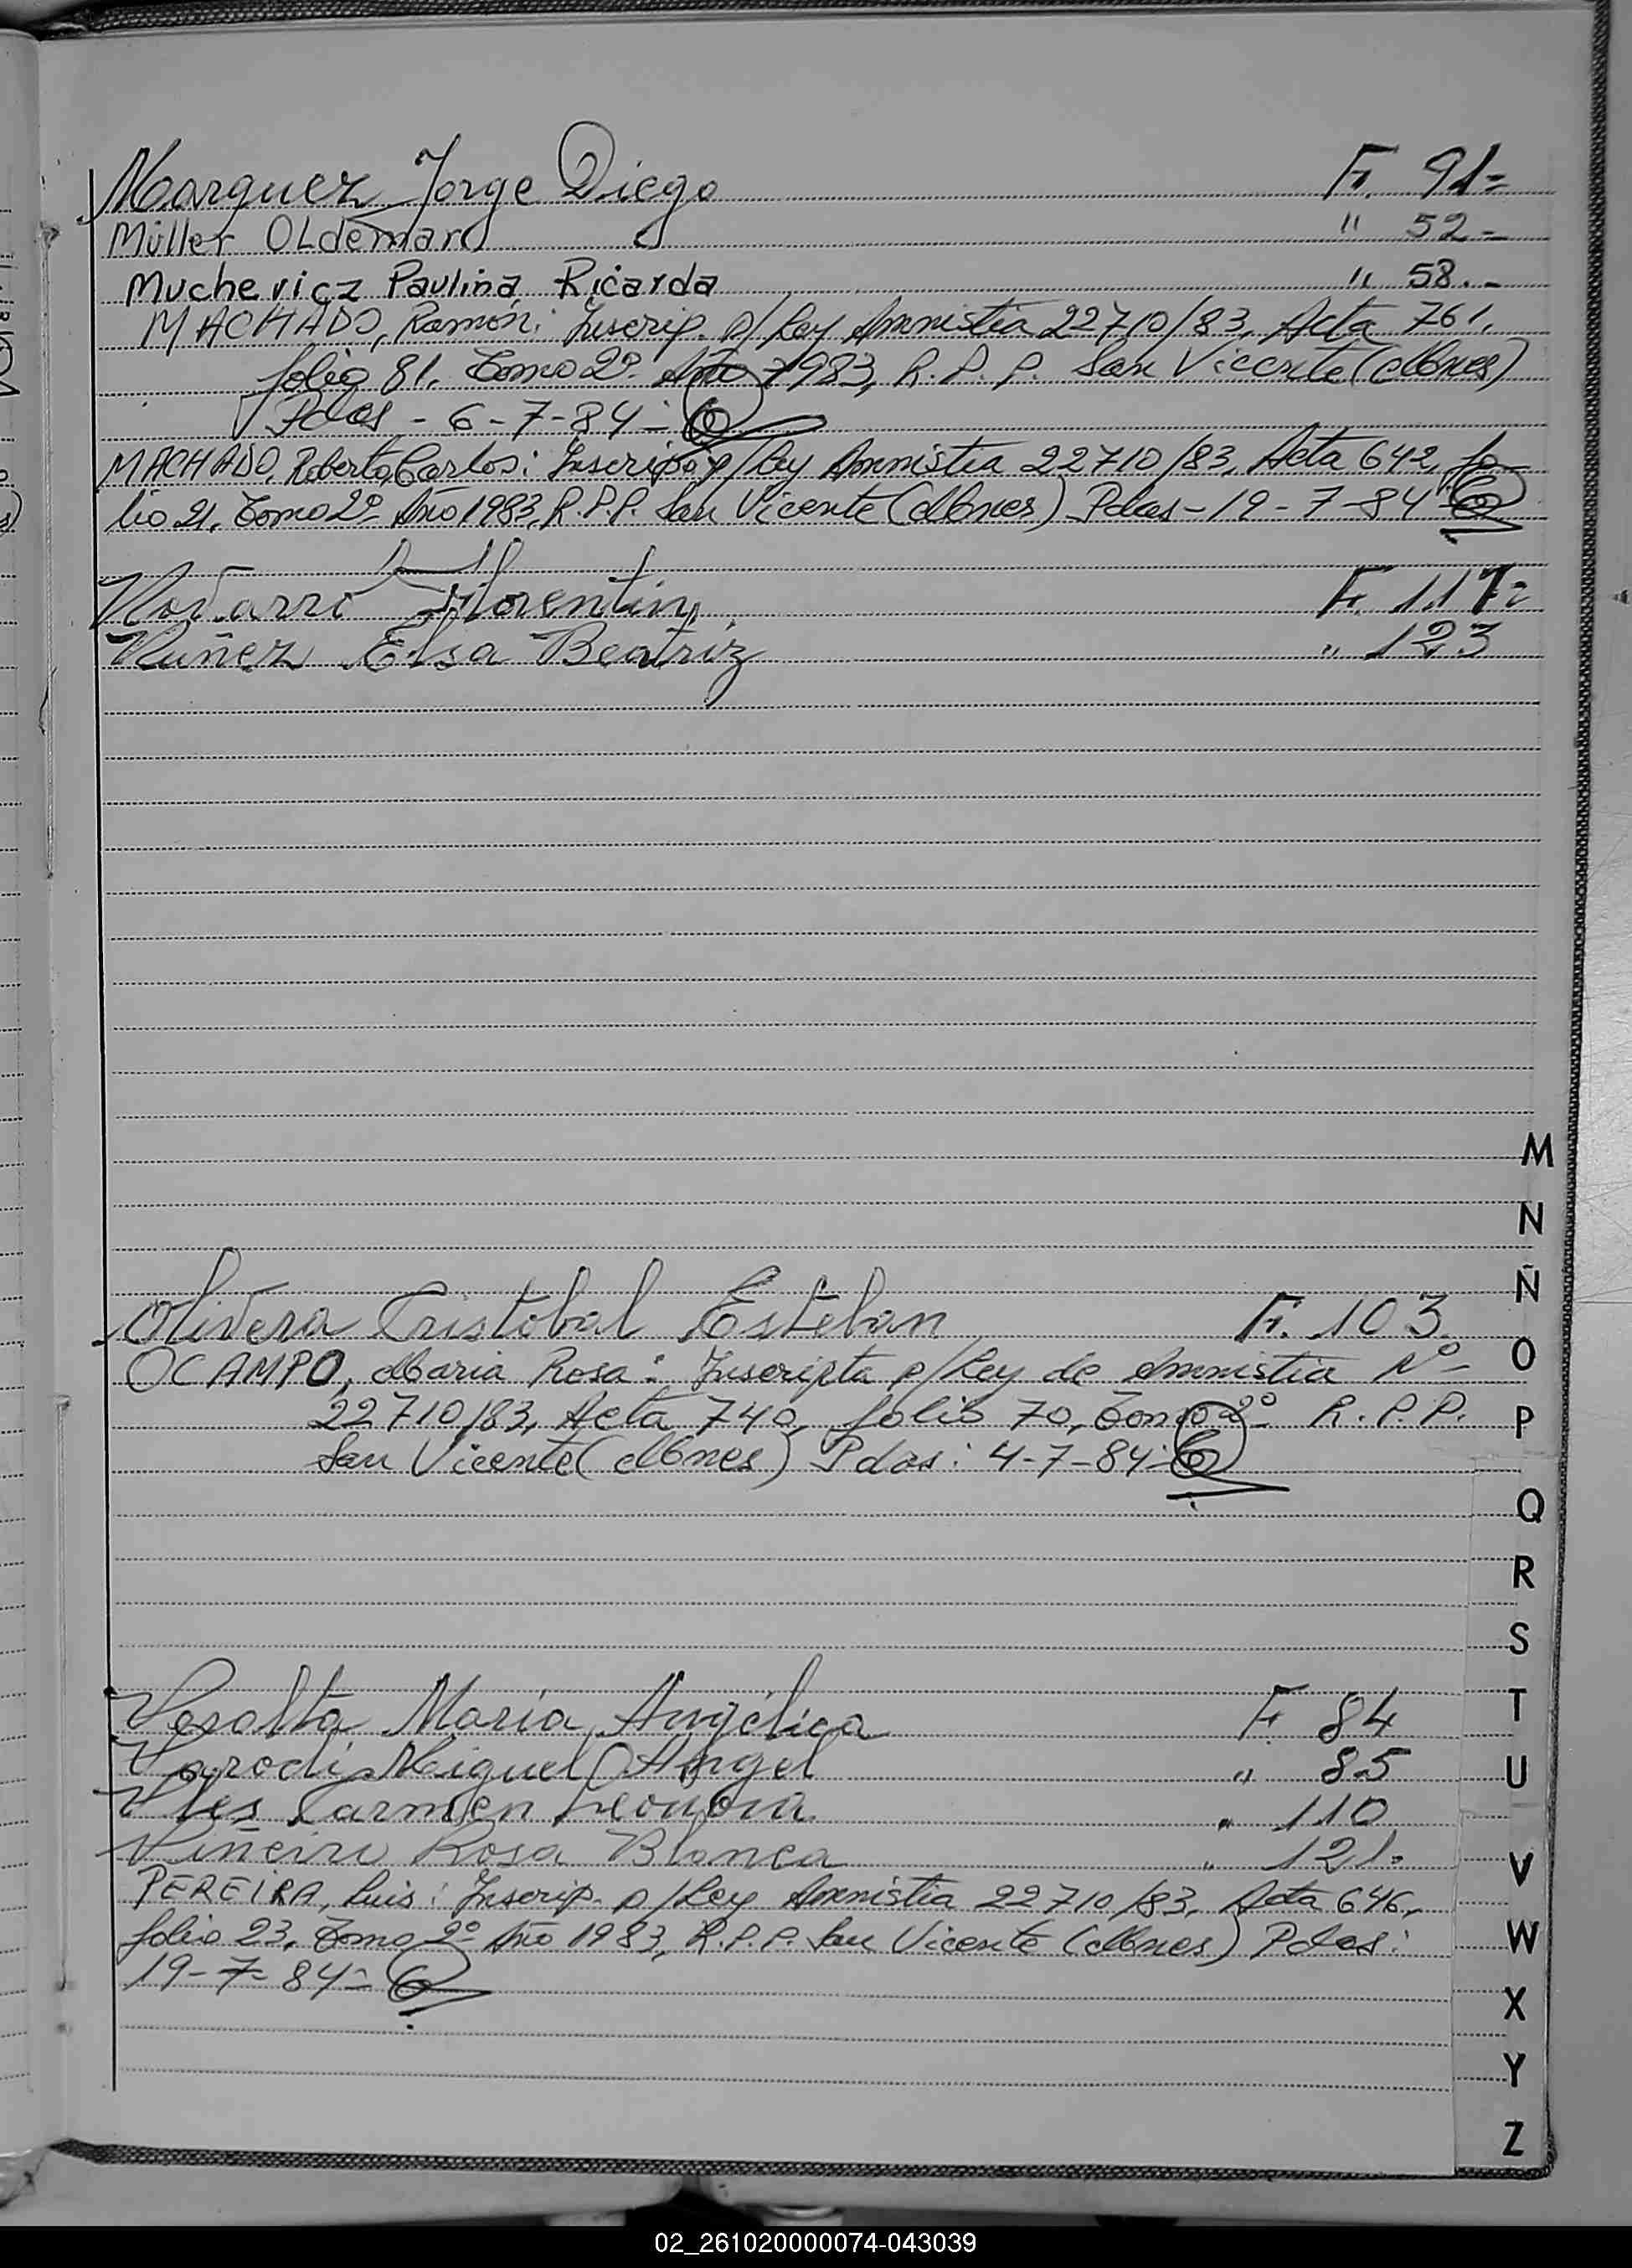 Marquez Jorge Diego F. 91=
Müller OLdemar " 52.-
Muchevicz Paulina Ricarda " 58.-
MACHADO, Ramón: Inscrip. p/Ley Amnistia 22710/83, Acta 761,
folio 81. Tomo 2º Año 1983, R.P.P. San Vicente (Mnes)
Pdas - 6-7-84=
MACHADO, Roberto Carlos: Inscripº p/Ley Amnistia 22710/83, Acta 642, fo-
lio 21. Tomo 2º Año 1983, R.P.P. San Vicente (Mnes) Pdas - 19-7-84
Navarro Florentin F. 117=
Nuñez Elsa Beatriz " 123
Olivera Cristobal Esteban F. 103
OCAMPO, Maria Rosa: Inscripta p/Ley de Amnistia Nº-
22710/83, Acta 740, folio 70, Tomo 2º R.P.P.
San Vicente (Mnes) Pdas: 4-7-84=
Peralta Maria Angélica F. 84
Parodi Miguel Angel " 85
Carmen " 110
Piñeiro Rosa Blanca " 121.
PEREIRA, Luis: Inscrip. p/Ley Amnistia 22710/83, Acta 646,
folio 23. Tomo 2º Año 1983, R.P.P. San Vicente (Mnes) Pdas:
19-7-84=
M
N
Ñ
O
P
Q
R
S
T
U
V
W
X
Y
Z
02_261020000074-043039